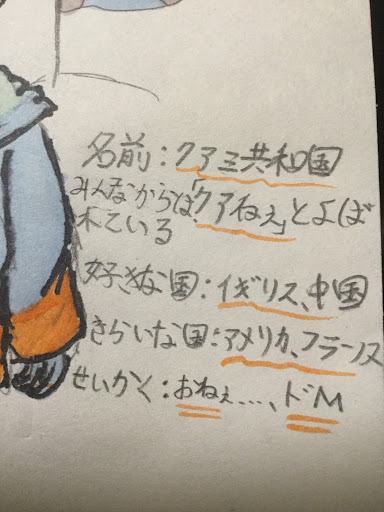 名前：クアミ共和国
みんなからは「クアねぇ」とよば
れている
好きな国：イギリス、中国
きらいな国：アメリカ、フランス
せいかく：おねぇ……、ドM